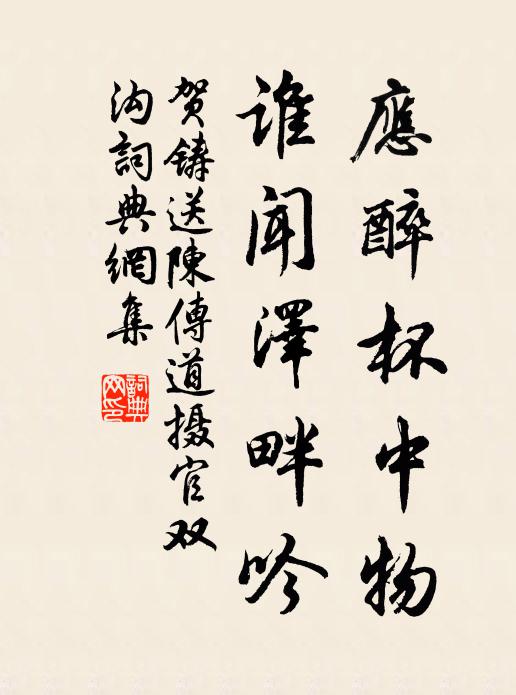 應醉杯中物
誰聞澤畔吟
賀鑄送陳傳道摄官双
沟詞典網集
詞典
网印